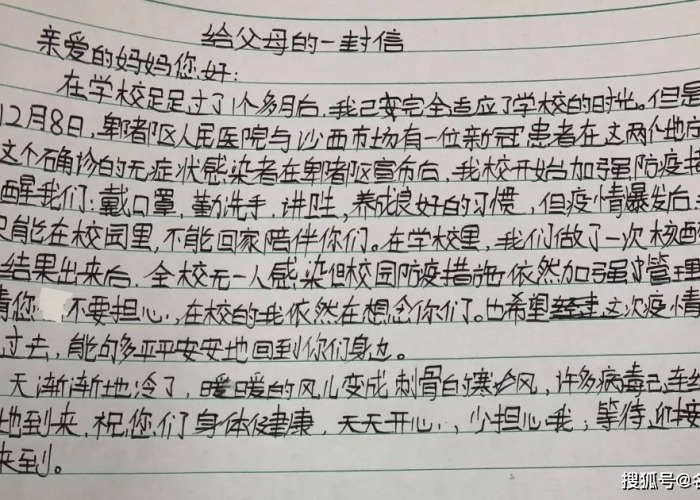 给父母的一封信
亲爱的妈妈您好:
在学校足足过了1个多月后,我已变完全适应了学校的时光。但是
12月8日,郫都区人民医院与沙西市场有一位新冠患者在这两个地
这个确诊的无症状感染者在郫都区宣布后,我校开始加强防疫措
醒我们:戴口罩,勤洗手,讲卫生,养成良好的习惯,但疫情爆发后
只能在校园里,不能回家陪伴你们。在学校里,我们做了一次核酸
结果出来后,全校无一人感染但校园防疫措施依然加强了管理
请您 不要担心,在校的我依然在想念你们。也希望这次疫情
过去,能够多平平安安地回到你们身边。
天渐渐地冷了,暖暖的风儿变成刺骨的寒冷风,许多病毒已连
地到来,祝您们身体健康,天天开心,少担心我;等待迎接
来到。
搜狐号@